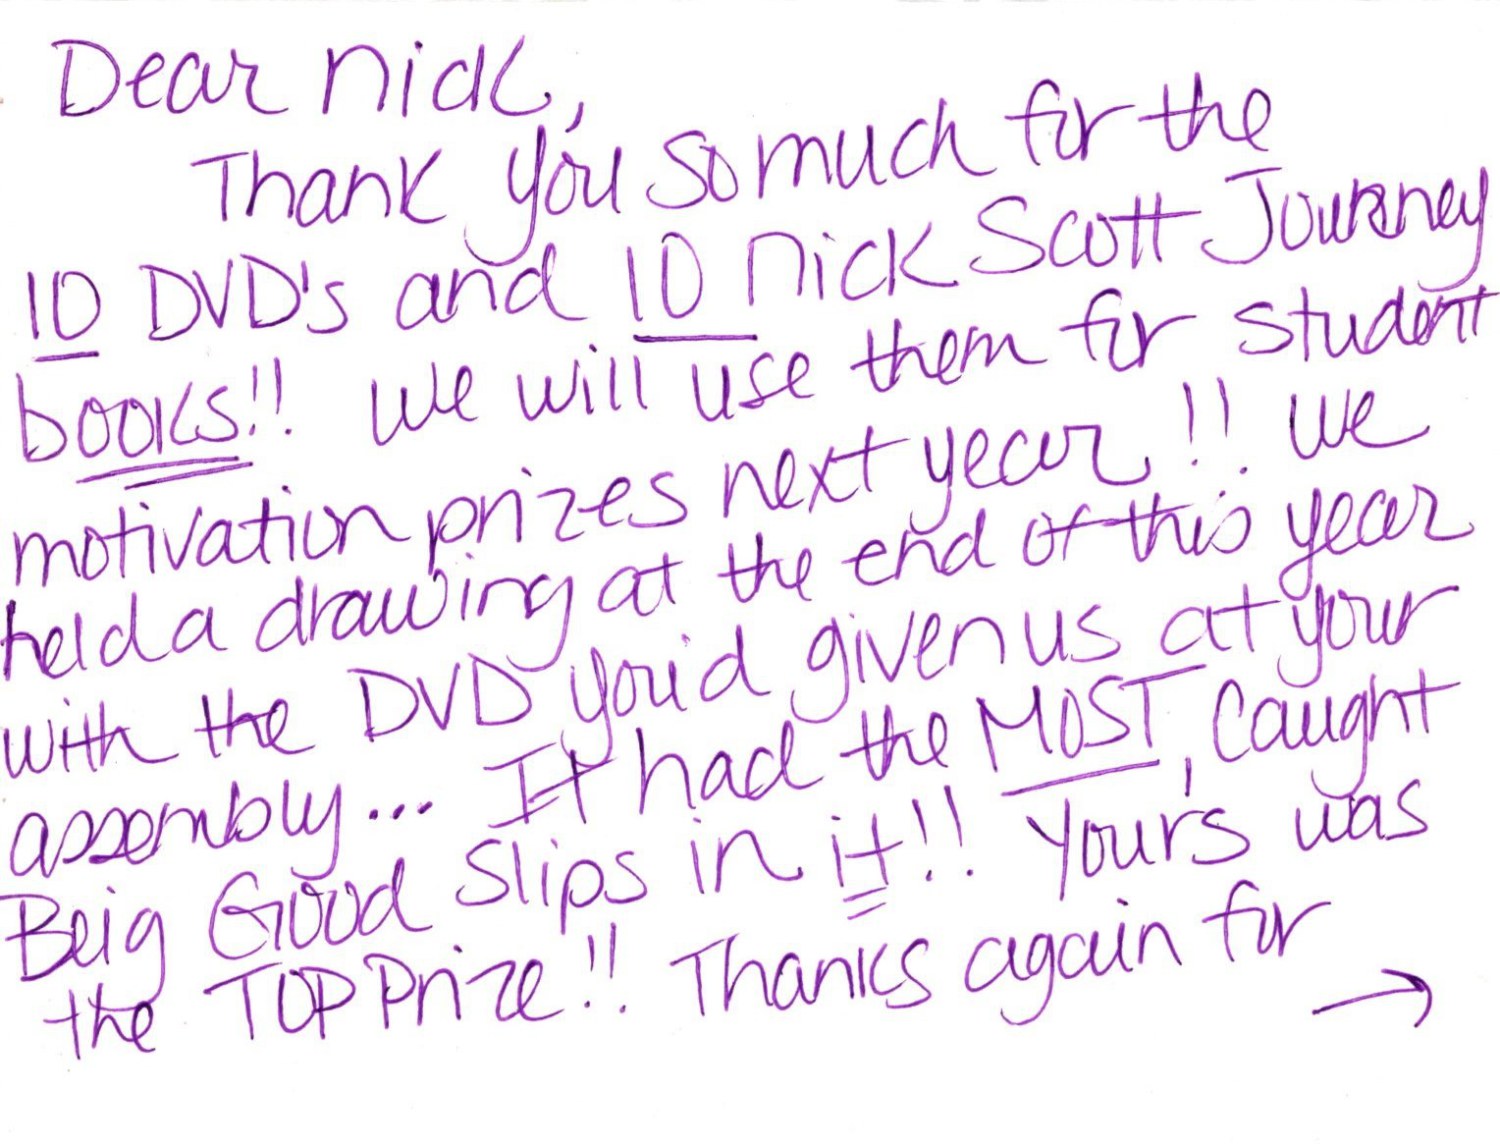 Dear Nick,
Thank you so much for the
10 DVD's and 10 Nick Scott Journey
books!! We will use them for student
motivation prizes next year!! We
held a drawing at the end of this year
with the DVD you'd given us at your
assembly... It had the MOST, Caught
Beig Good slips in it!! Your's was
the TOP Prize!! Thanks again for
→